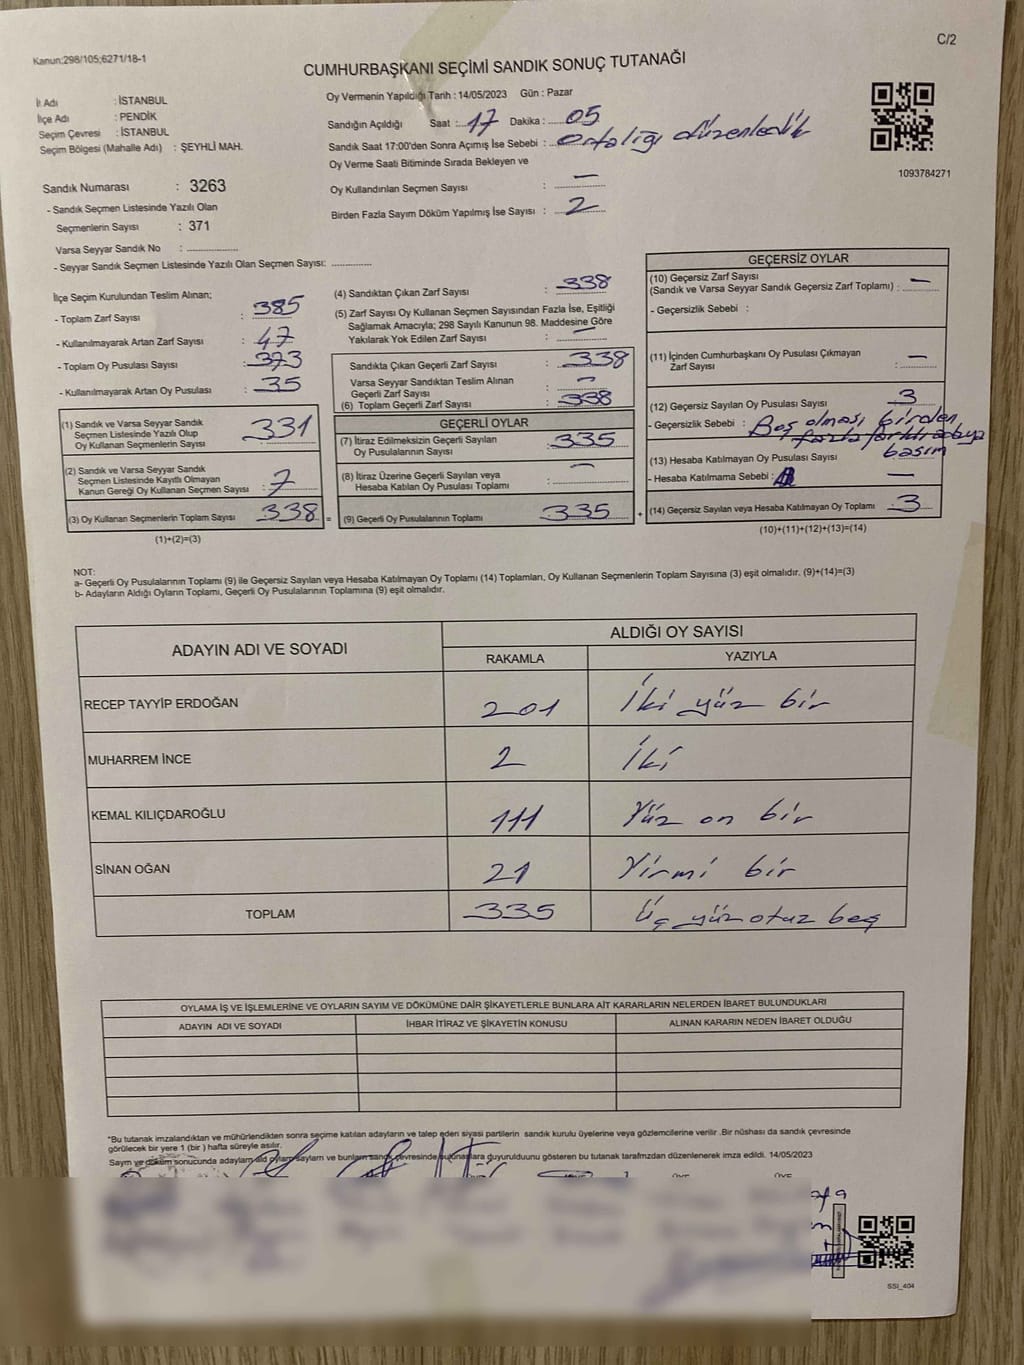 Kanun:298/105;6271/18-1
C/2
CUMHURBAŞKANI SEÇİMİ SANDIK SONUÇ TUTANAĞI
İl Adı : İSTANBUL
İlçe Adı : PENDİK
Seçim Çevresi : İSTANBUL
Seçim Bölgesi (Mahalle Adı) : ŞEYHLİ MAH.
Oy Vermenin Yapıldığı Tarih : 14/05/2023 Gün : Pazar
Sandığın Açıldığı Saat : 17 Dakika : 05
Sandık Saat 17:00'den Sonra Açımış İse Sebebi : Ortalığı düzenledik
Oy Verme Saati Bitiminde Sırada Bekleyen ve
Oy Kullandırılan Seçmen Sayısı : —
Birden Fazla Sayım Döküm Yapılmış İse Sayısı : 2
1093784271
Sandık Numarası : 3263
- Sandık Seçmen Listesinde Yazılı Olan
Seçmenlerin Sayısı : 371
Varsa Seyyar Sandık No : ..............
- Seyyar Sandık Seçmen Listesinde Yazılı Olan Seçmen Sayısı: ............
İlçe Seçim Kurulundan Teslim Alınan;
- Toplam Zarf Sayısı : 385
- Kullanılmayarak Artan Zarf Sayısı : 47
- Toplam Oy Pusulası Sayısı : 373
- Kullanılmayarak Artan Oy Pusulası : 35
(1) Sandık ve Varsa Seyyar Sandık
Seçmen Listesinde Yazılı Olup
Oy Kullanan Seçmenlerin Sayısı : 331
(2) Sandık ve Varsa Seyyar Sandık
Seçmen Listesinde Kayıtlı Olmayan
Kanun Gereği Oy Kullanan Seçmen Sayısı : 7
(3) Oy Kullanan Seçmenlerin Toplam Sayısı 338 =
(1)+(2)=(3)
(4) Sandıktan Çıkan Zarf Sayısı : 338
(5) Zarf Sayısı Oy Kullanan Seçmen Sayısından Fazla İse, Eşitliği
Sağlamak Amacıyla; 298 Sayılı Kanunun 98. Maddesine Göre
Yakılarak Yok Edilen Zarf Sayısı : —
Sandıkta Çıkan Geçerli Zarf Sayısı : 338
Varsa Seyyar Sandıktan Teslim Alınan
Geçerli Zarf Sayısı : —
(6) Toplam Geçerli Zarf Sayısı : 338
GEÇERLİ OYLAR
(7) İtiraz Edilmeksizin Geçerli Sayılan
Oy Pusulalarının Sayısı : 335
(8) İtiraz Üzerine Geçerli Sayılan veya
Hesaba Katılan Oy Pusulası Toplamı : —
(9) Geçerli Oy Pusulalarının Toplamı 335 +
GEÇERSİZ OYLAR
(10) Geçersiz Zarf Sayısı
(Sandık ve Varsa Seyyar Sandık Geçersiz Zarf Toplamı) : —
- Geçersizlik Sebebi :
(11) İçinden Cumhurbaşkanı Oy Pusulası Çıkmayan
Zarf Sayısı : —
(12) Geçersiz Sayılan Oy Pusulası Sayısı : 3
- Geçersizlik Sebebi : Boş olması birden
fazla farklı adaya
basım
(13) Hesaba Katılmayan Oy Pusulası Sayısı
- Hesaba Katılmama Sebebi : —
(14) Geçersiz Sayılan veya Hesaba Katılmayan Oy Toplamı : 3
(10)+(11)+(12)+(13)=(14)
NOT:
a- Geçerli Oy Pusulalarının Toplamı (9) ile Geçersiz Sayılan veya Hesaba Katılmayan Oy Toplamı (14) Toplamları, Oy Kullanan Seçmenlerin Toplam Sayısına (3) eşit olmalıdır. (9)+(14)=(3)
b- Adayların Aldığı Oyların Toplamı, Geçerli Oy Pusulalarının Toplamına (9) eşit olmalıdır.
ADAYIN ADI VE SOYADI
ALDIĞI OY SAYISI
RAKAMLA YAZIYLA
RECEP TAYYİP ERDOĞAN 201 İki yüz bir
MUHARREM İNCE 2 İki
KEMAL KILIÇDAROĞLU 111 Yüz on bir
SİNAN OĞAN 21 Yirmi bir
TOPLAM 335 Üç yüz otuz beş
OYLAMA İŞ VE İŞLEMLERİNE VE OYLARIN SAYIM VE DÖKÜMÜNE DAİR ŞİKAYETLERLE BUNLARA AİT KARARLARIN NELERDEN İBARET BULUNDUKLARI
ADAYIN ADI VE SOYADI İHBAR İTİRAZ VE ŞİKAYETİN KONUSU ALINAN KARARIN NEDEN İBARET OLDUĞU
"Bu tutanak imzalandıktan ve mühürlendikten sonra seçime katılan adayların ve talep eden siyasi partilerin sandık kurulu üyelerine veya gözlemcilerine verilir .Bir nüshası da sandık çevresinde
görülecek bir yere 1 (bir ) hafta süreyle asılır.
Sayım ve döküm sonucunda adayların oyların sayları ve bunların sandık çevresinde duyurulduunu gösteren bu tutanak tarafımızdan düzenlenerek imza edildi. 14/05/2023
ÜYE ÜYE
SSİ_404